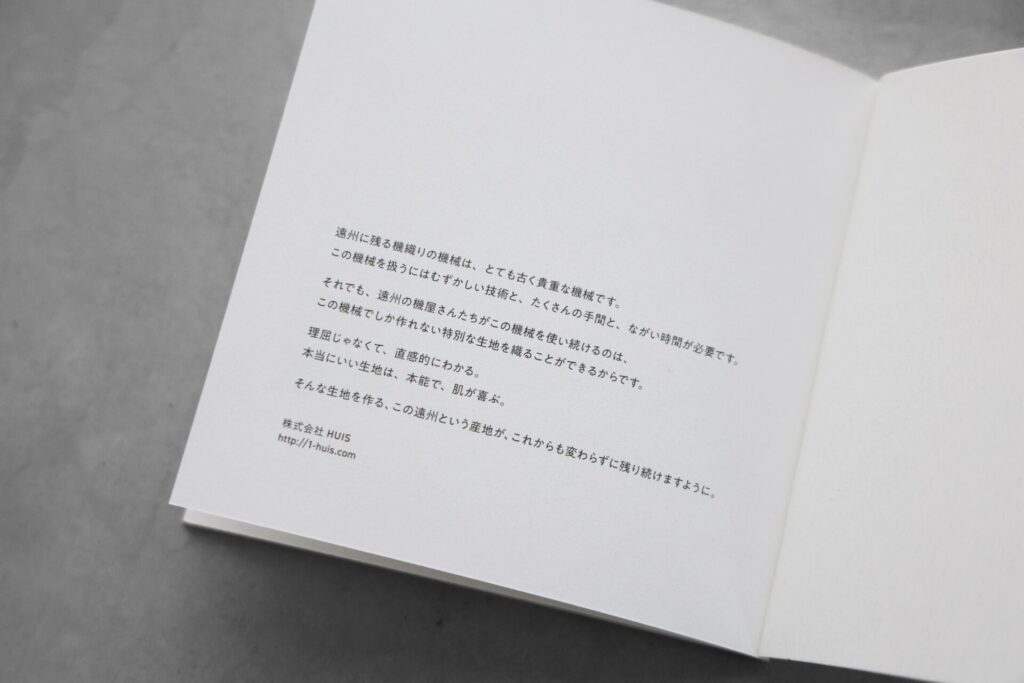 遠州に残る機織りの機械は、とても古く貴重な機械です。
この機械を扱うにはむずかしい技術と、たくさんの手間と、ながい時間が必要です。
それでも、遠州の機屋さんたちがこの機械を使い続けるのは、
この機械でしか作れない特別な生地を織ることができるからです。
理屈じゃなくて、直感的にわかる。
本当にいい生地は、本能で、肌が喜ぶ。
そんな生地を作る、この遠州という産地が、これからも変わらずに残り続けますように。
株式会社 HUIS
http://1-huis.com